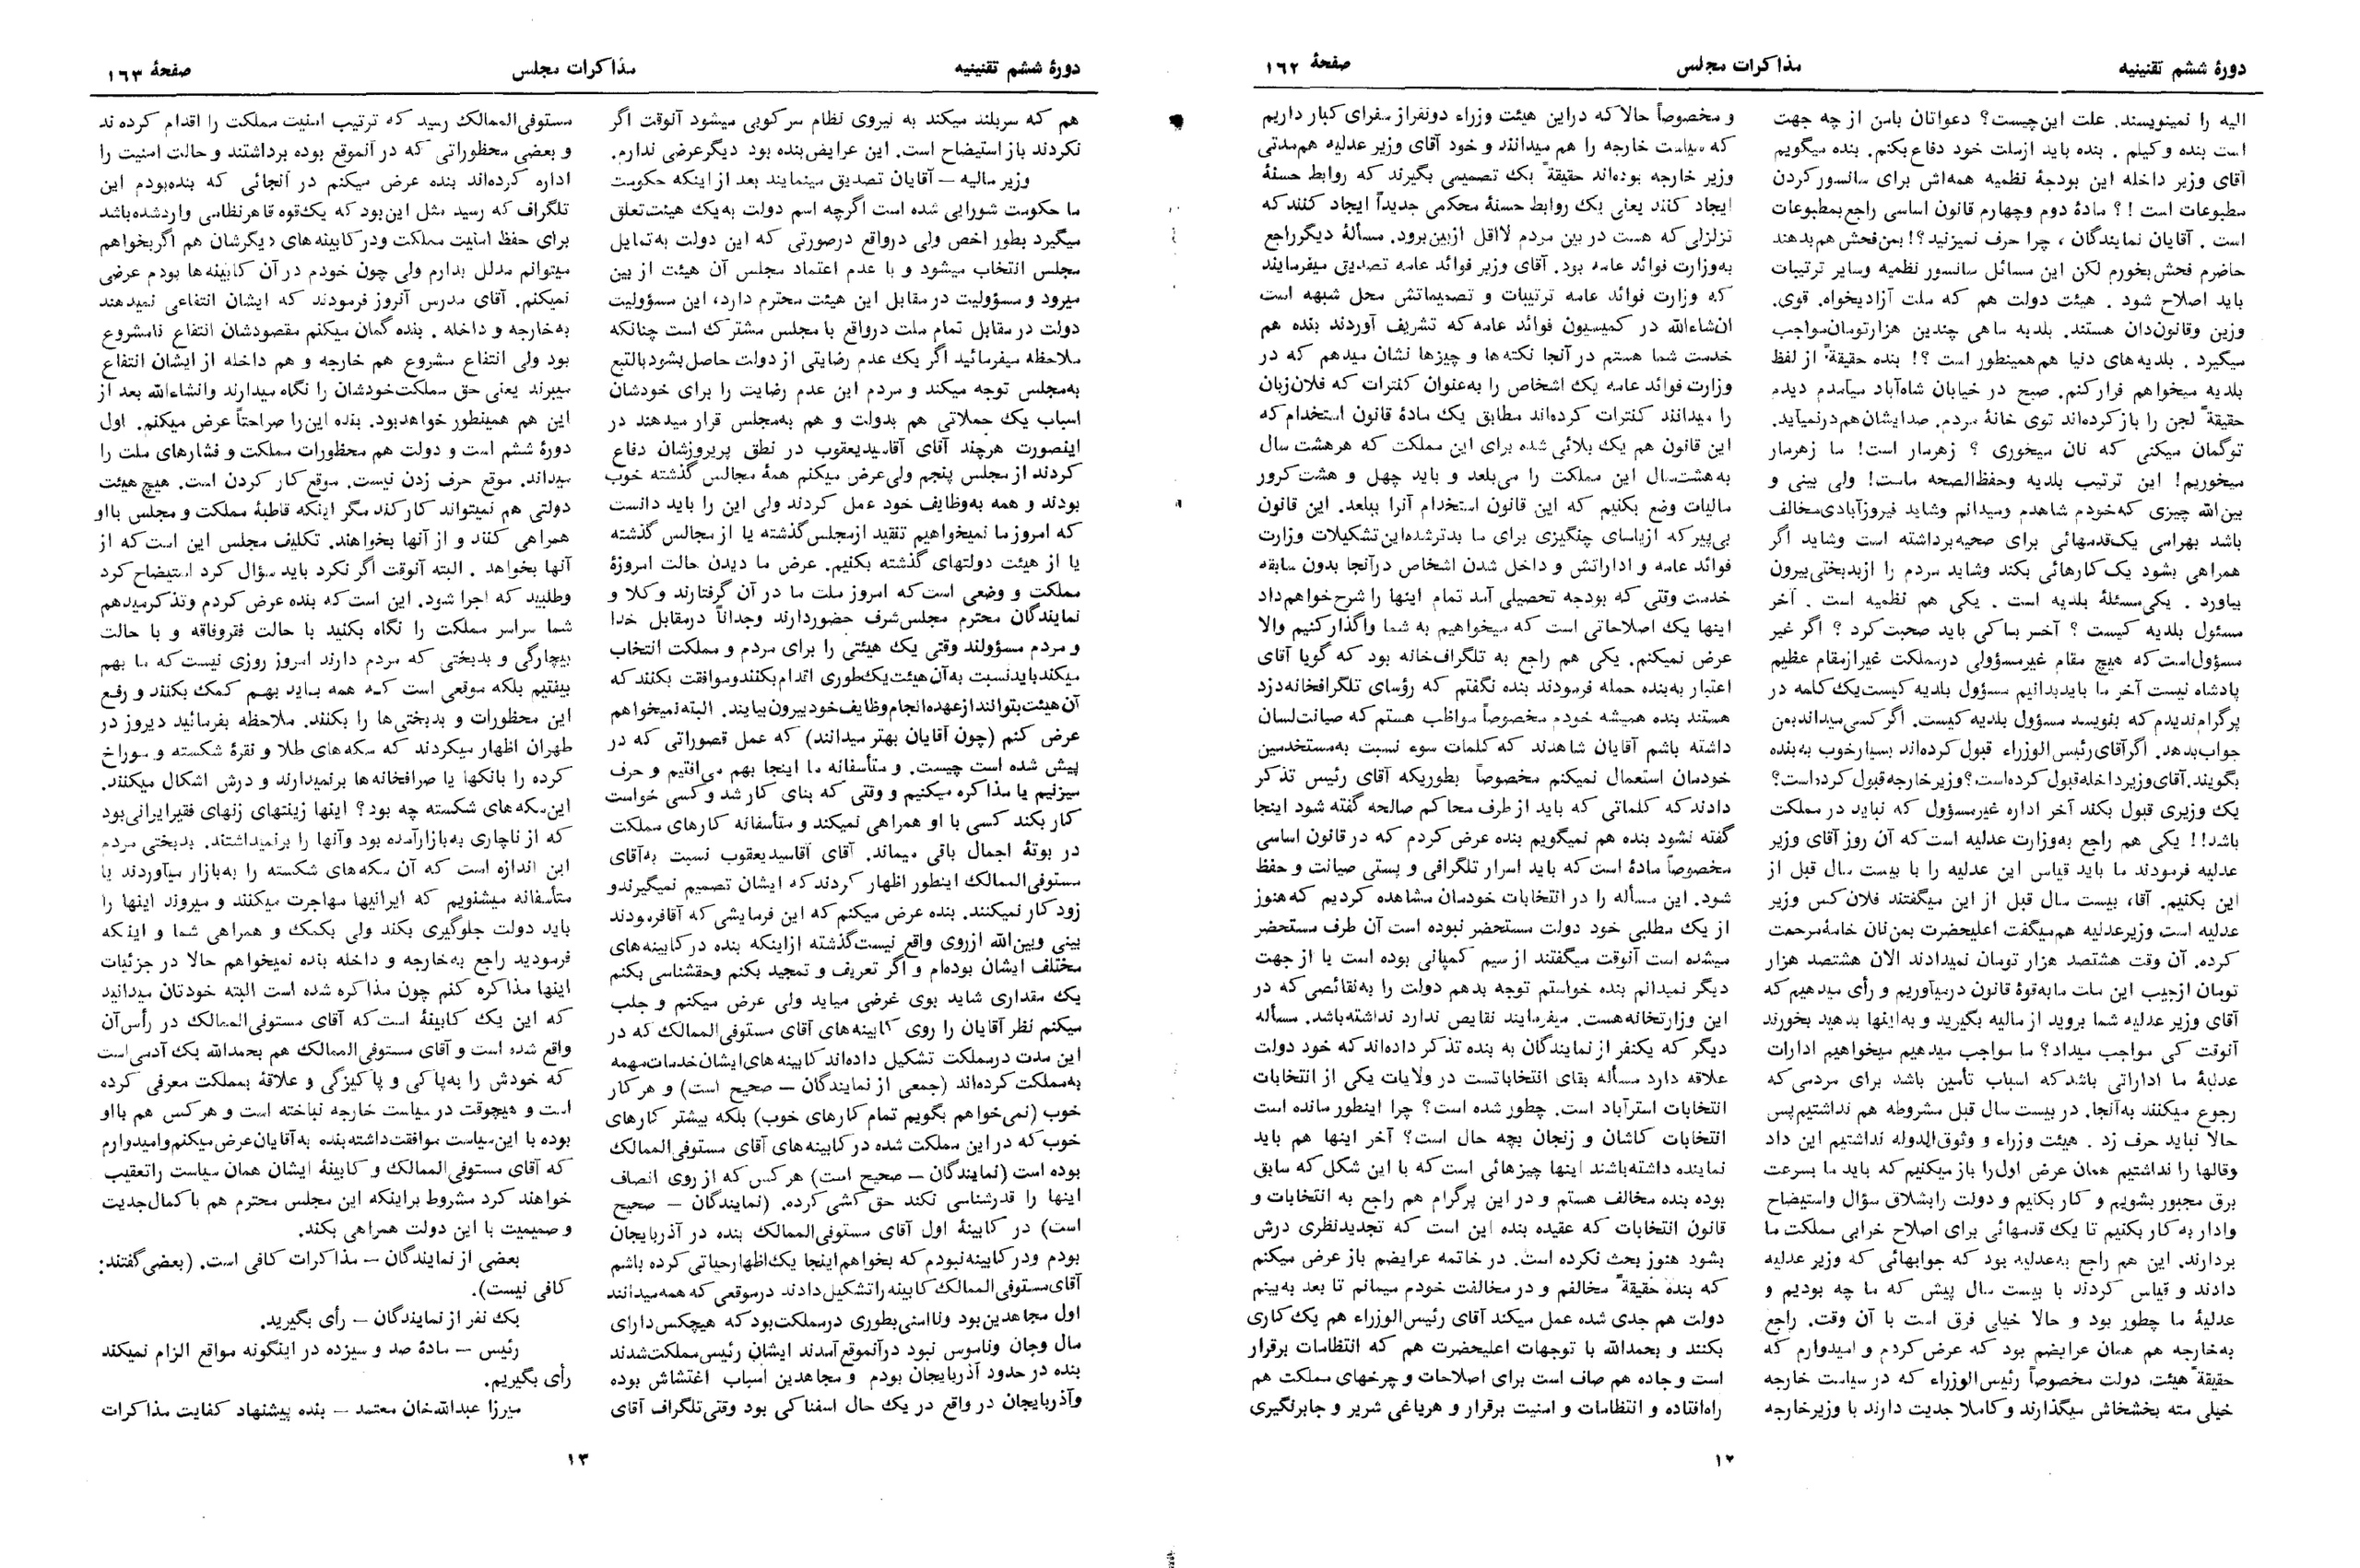 دورهٔ ششم تقنینیه
مذاکرات مجلس
صفحهٔ ۱۶۲
الیه را نمینویسند. علت این چیست؟ دعواتان بامن از چه جهت
است بنده وکیلم . بنده باید ازملت خود دفاع بکنم. بنده میگویم
آقای وزیر داخله این بودجهٔ نظمیه همه‌اش برای سانسور کردن
مطبوعات است !؟ مادهٔ دوم وچهارم قانون اساسی راجع بمطبوعات
است . آقایان نمایندگان ، چرا حرف نمیزنید؟! بمن فحش هم بدهند
حاضرم فحش بخورم لکن این مسائل سانسور نظمیه وسایر ترتیبات
باید اصلاح شود . هیئت دولت هم که ملت آزادیخواه. قوی.
وزین وقانون‌دان هستند. بلدیه ماهی چندین هزارتومان مواجب
میگیرد . بلدیه‌های دنیا هم همینطور است ؟! بنده حقیقةً از لفظ
بلدیه میخواهم فرار کنم. صبح در خیابان شاه‌آباد میآمدم دیدم
حقیقةً لجن را باز کرده‌اند توی خانهٔ مردم. صدایشان هم درنمیآید.
توگمان میکنی که نان میخوری ؟ زهرمار است! ما زهرمار
میخوریم! این ترتیب بلدیه وحفظ‌الصحه ماست! ولی بینی و
بین‌الله چیزی که خودم شاهدم ومیدانم وشاید فیروزآبادی مخالف
باشد بهرامی یک قدمهائی برای صحیه برداشته است وشاید اگر
همراهی بشود یک کارهائی بکند وشاید مردم را ازبدبختی بیرون
بیاورد . یکی مسئلهٔ بلدیه است . یکی هم نظمیه است . آخر
مسئول بلدیه کیست ؟ آخر بما کی باید صحبت کرد ؟ اگر غیر
مسؤول است که هیچ مقام غیرمسؤولی درمملکت غیر ازمقام عظیم
پادشاه نیست آخر ما باید بدانیم مسؤول بلدیه کیست یک کلمه در
پرگرام ندیدم که بنویسد مسؤول بلدیه کیست. اگر کسی میداند بمن
جواب بدهد. اگر آقای رئیس‌الوزراء قبول کرده‌اند بسیار خوب به بنده
بگویند. آقای وزیر داخله قبول کرده است؟ وزیر خارجه قبول کرده است؟
یک وزیری قبول بکند آخر اداره غیرمسؤول که نباید در مملکت
باشد!! یکی هم راجع به‌وزارت عدلیه است که آن روز آقای وزیر
عدلیه فرمودند ما باید قیاس این عدلیه را با بیست سال قبل از
این بکنیم. آقا، بیست سال قبل از این میگفتند فلان کس وزیر
عدلیه است وزیرعدلیه هم میگفت اعلیحضرت بمن نان خامهٔ مرحمت
کرده. آن وقت هشتصد هزار تومان نمیدادند الان هشتصد هزار
تومان ازجیب این ملت مابه‌قوهٔ قانون درمیآوریم و رأی میدهیم که
آقای وزیر عدلیه شما بروید از مالیه بگیرید و به اینها بدهید بخورند
آنوقت کی مواجب میداد؟ ما مواجب میدهیم میخواهیم ادارات
عدلیهٔ ما اداراتی باشد که اسباب تأمین باشد برای مردمی که
رجوع میکنند به‌آنجا. در بیست سال قبل مشروطه هم نداشتیم پس
حالا نباید حرف زد . هیئت وزراء و وثوق‌الدوله نداشتیم این داد
وقالها را نداشتیم همان عرض اول را باز میکنیم که باید ما بسرعت
برق مجبور بشویم و کار بکنیم و دولت را بشلاق سؤال واستیضاح
وادار به کار بکنیم تا یک قدمهائی برای اصلاح خرابی مملکت ما
بردارند. این هم راجع به‌عدلیه بود که جوابهائی که وزیر عدلیه
دادند و قیاس کردند با بیست سال پیش که ما چه بودیم و
عدلیهٔ ما چطور بود و حالا خیلی فرق است با آن وقت. راجع
به‌خارجه هم همان عرایضم بود که عرض کردم و امیدوارم که
حقیقةً هیئت دولت مخصوصاً رئیس‌الوزراء که در سیاست خارجه
خیلی مته بخشخاش میگذارند و کاملا جدیت دارند با وزیر خارجه
و مخصوصاً حالا که دراین هیئت وزراء دونفراز سفرای کبار داریم
که سیاست خارجه را هم میدانند و خود آقای وزیر عدلیه هم مدتی
وزیر خارجه بوده‌اند حقیقةً یک تصمیمی بگیرند که روابط حسنهٔ
ایجاد کنند یعنی یک روابط حسنهٔ محکمی جدیداً ایجاد کنند که
تزلزلی که هست در بین مردم لااقل ازبین برود. مسألهٔ دیگر راجع
به‌وزارت فوائد عامه بود. آقای وزیر فوائد عامه تصدیق میفرمایند
که وزارت فوائد عامه ترتیبات و تصمیماتش محل شبهه است
ان‌شاءالله در کمیسیون فوائد عامه که تشریف آوردند بنده هم
خدمت شما هستم در آنجا نکته‌ها و چیزها نشان میدهم که در
وزارت فوائد عامه یک اشخاص را به‌عنوان کنترات که فلان زبان
را میدانند کنترات کرده‌اند مطابق یک مادهٔ قانون استخدام که
این قانون هم یک بلائی شده برای این مملکت که هر هشت سال
به هشت‌سال این مملکت را می‌بلعد و باید چهل و هشت کرور
مالیات وضع بکنیم که این قانون استخدام آنرا ببلعد. این قانون
بی‌پیر که ازیاسای چنگیزی برای ما بدترشده این تشکیلات وزارت
فوائد عامه و اداراتش و داخل شدن اشخاص درآنجا بدون سابقه
خدمت وقتی که بودجه تحصیلی آمد تمام اینها را شرح خواهم داد
اینها یک اصلاحاتی است که میخواهیم به شما واگذار کنیم والا
عرض نمیکنم. یکی هم راجع به تلگراف‌خانه بود که گویا آقای
اعتبار به‌بنده حمله فرمودند بنده نگفتم که رؤسای تلگرافخانه دزد
هستند بنده همیشه خودم مخصوصاً مواظب هستم که صیانت لسان
داشته باشم آقایان شاهدند که کلمات سوء نسبت به‌مستخدمین
خودمان استعمال نمیکنم مخصوصاً بطوریکه آقای رئیس تذکر
دادند که کلماتی که باید از طرف محاکم صالحه گفته شود اینجا
گفته نشود بنده هم نمیگویم بنده عرض کردم که در قانون اساسی
مخصوصاً مادهٔ است که باید اسرار تلگرافی و پستی صیانت و حفظ
شود. این مسأله را در انتخابات خودمان مشاهده کردیم که هنوز
از یک مطلبی خود دولت مستحضر نبوده است آن طرف مستحضر
میشده است آنوقت میگفتند از سیم کمپانی بوده است یا از جهت
دیگر نمیدانم بنده خواستم توجه بدهم دولت را به‌نقائصی که در
این وزارتخانه هست. میفرمایند نقایص ندارد نداشته باشد. مسأله
دیگر که یکنفر از نمایندگان به بنده تذکر داده‌اند که خود دولت
علاقه دارد مسأله بقای انتخاباتست در ولایات یکی از انتخابات
انتخابات استرآباد است. چطور شده است؟ چرا اینطور مانده است
انتخابات کاشان و زنجان بچه حال است؟ آخر اینها هم باید
نماینده داشته باشند اینها چیزهائی است که با این شکل که سابق
بوده بنده مخالف هستم و در این پرگرام هم راجع به انتخابات و
قانون انتخابات که عقیده بنده این است که تجدیدنظری درش
بشود هنوز بحث نکرده است. در خاتمه عرایضم باز عرض میکنم
که بنده حقیقةً مخالفم و در مخالفت خودم میمانم تا بعد به‌بینم
دولت هم جدی شده عمل میکند آقای رئیس‌الوزراء هم یک کاری
بکنند و بحمدالله با توجهات اعلیحضرت هم که انتظامات برقرار
است و جاده هم صاف است برای اصلاحات و چرخهای مملکت هم
راه‌افتاده و انتظامات و امنیت برقرار و هر یاغی شریر و جابرنگیری
۱۲
دورهٔ ششم تقنینیه
مذاکرات مجلس
صفحهٔ ۱۶۳
هم که سربلند میکند به نیروی نظام سرکوبی میشود آنوقت اگر
نکردند باز استیضاح است. این عرایض بنده بود دیگر عرضی ندارم.
وزیر مالیه – آقایان تصدیق مینمایند بعد از اینکه حکومت
ما حکومت شورایی شده است اگرچه اسم دولت به‌یک هیئت تعلق
میگیرد بطور اخص ولی درواقع درصورتی که این دولت به‌تمایل
مجلس انتخاب میشود و با عدم اعتماد مجلس آن هیئت از بین
میرود و مسؤولیت در مقابل این هیئت محترم دارد، این مسؤولیت
دولت در مقابل تمام ملت درواقع با مجلس مشترک است چنانکه
ملاحظه میفرمائید اگر یک عدم رضایتی از دولت حاصل بشود بالتبع
به‌مجلس توجه میکند و مردم این عدم رضایت را برای خودشان
اسباب یک حملاتی هم بدولت و هم به‌مجلس قرار میدهند در
اینصورت هرچند آقای آقاسیدیعقوب در نطق پریروزشان دفاع
کردند از مجلس پنجم ولی عرض میکنم همهٔ مجالس گذشته خوب
بودند و همه به‌وظایف خود عمل کردند ولی این را باید دانست
که امروز ما نمیخواهیم تنقید ازمجلس گذشته یا از مجالس گذشته
یا از هیئت دولتهای گذشته بکنیم. عرض ما دیدن حالت امروزهٔ
مملکت و وضعی است که امروز ملت ما در آن گرفتارند و کلا و
نمایندگان محترم مجلس شرف حضور دارند وجداناً درمقابل خدا
و مردم مسؤولند وقتی یک هیئتی را برای مردم و مملکت انتخاب
میکند باید نسبت به آن هیئت یک طوری اقدام بکنند و موافقت بکنند که
آن هیئت بتوانند از عهده انجام وظایف خود بیرون بیایند. البته نمیخواهم
عرض کنم (چون آقایان بهتر میدانند) که عمل قصوراتی که در
پیش شده است چیست. و متأسفانه ما اینجا بهم می‌افتیم و حرف
میزنیم یا مذاکره میکنیم و وقتی که بنای کار شد و کسی خواست
کار بکند کسی با او همراهی نمیکند و متأسفانه کارهای مملکت
در بوتهٔ اجمال باقی میماند. آقای آقاسیدیعقوب نسبت به‌آقای
مستوفی‌الممالک اینطور اظهار کردند که ایشان تصمیم نمیگیرند و
زود کار نمیکنند. بنده عرض میکنم که این فرمایشی که آقا فرمودند
بینی وبین‌الله ازروی واقع نیست گذشته ازاینکه بنده در کابینه‌های
مختلف ایشان بوده‌ام و اگر تعریف و تمجید بکنم وحقشناسی بکنم
یک مقداری شاید بوی غرضی میاید ولی عرض میکنم و جلب
میکنم نظر آقایان را روی کابینه‌های آقای مستوفی‌الممالک که در
این مدت درمملکت تشکیل داده‌اند کابینه‌های ایشان خدمات مهمه
به‌مملکت کرده‌اند (جمعی از نمایندگان – صحیح است) و هر کار
خوب (نمی‌خواهم بگویم تمام کارهای خوب) بلکه بیشتر کارهای
خوب که در این مملکت شده در کابینه‌های آقای مستوفی‌الممالک
بوده است (نمایندگان – صحیح است) هر کس که از روی انصاف
اینها را قدرشناسی نکند حق کشی کرده. (نمایندگان – صحیح
است) در کابینهٔ اول آقای مستوفی‌الممالک بنده در آذربایجان
بودم و در کابینه نبودم که بخواهم اینجا یک اظهار حیاتی کرده باشم
آقای مستوفی‌الممالک کابینه را تشکیل دادند درموقعی که همه میدانند
اول مجاهدین بود و ناامنی بطوری درمملکت بود که هیچکس دارای
مال وجان وناموس نبود درآنموقع آمدند ایشان رئیس مملکت شدند
بنده در حدود آذربایجان بودم و مجاهدین اسباب اغتشاش بوده
وآذربایجان در واقع در یک حال اسفناکی بود وقتی تلگراف آقای
مستوفی‌الممالک رسید که ترتیب امنیت مملکت را اقدام کرده‌اند
و بعضی محظوراتی که در آنموقع بوده برداشتند و حالت امنیت را
اداره کرده‌اند بنده عرض میکنم در آنجائی که بنده بودم این
تلگراف که رسید مثل این بود که یک قوه قاهر نظامی وارد شده باشد
برای حفظ امنیت مملکت ودر کابینه‌های دیگرشان هم اگر بخواهم
میتوانم مدلل بدارم ولی چون خودم در آن کابینه‌ها بودم عرضی
نمیکنم. آقای مدرس آنروز فرمودند که ایشان انتفاعی نمیدهند
به‌خارجه و داخله . بنده گمان میکنم مقصودشان انتفاع نامشروع
بود ولی انتفاع مشروع هم خارجه و هم داخله از ایشان انتفاع
میبرند یعنی حق مملکت خودشان را نگاه میدارند وانشاءالله بعد از
این هم همینطور خواهد بود. بنده این را صراحتاً عرض میکنم. اول
دورهٔ ششم است و دولت هم محظورات مملکت و فشارهای ملت را
میداند. موقع حرف زدن نیست. موقع کار کردن است. هیچ هیئت
دولتی هم نمیتواند کار کند مگر اینکه قاطبهٔ مملکت و مجلس بااو
همراهی کنند و از آنها بخواهند. تکلیف مجلس این است که از
آنها بخواهد . البته آنوقت اگر نکرد باید سؤال کرد استیضاح کرد
وطلبید که اجرا شود. این است که بنده عرض کردم وتذکر میدهم
شما سراسر مملکت را نگاه بکنید با حالت فقروفاقه و با حالت
بیچارگی و بدبختی که مردم دارند امروز روزی نیست که ما بهم
بیفتیم بلکه موقعی است که همه باید بهم کمک بکنند و رفع
این محظورات و بدبختی‌ها را بکنند. ملاحظه بفرمائید دیروز در
طهران اظهار میکردند که سکه‌های طلا و نقرهٔ شکسته و سوراخ
کرده را بانکها یا صرافخانه‌ها برنمیدارند و درش اشکال میکنند.
این سکه‌های شکسته چه بود؟ اینها زینتهای زنهای فقیر ایرانی بود
که از ناچاری به‌بازار آمده بود وآنها را برنمیداشتند. بدبختی مردم
این اندازه است که آن سکه‌های شکسته را به‌بازار میآوردند یا
متأسفانه میشنویم که ایرانیها مهاجرت میکنند و میروند اینها را
باید دولت جلوگیری بکند ولی بکمک و همراهی شما و اینکه
فرمودید راجع به‌خارجه و داخله بنده نمیخواهم حالا در جزئیات
اینها مذاکره کنم چون مذاکره شده است البته خودتان میدانید
که این یک کابینهٔ است که آقای مستوفی‌الممالک در رأس آن
واقع شده است و آقای مستوفی‌الممالک هم بحمدالله یک آدمی است
که خودش را به‌پاکی و پاکیزگی و علاقهٔ بمملکت معرفی کرده
است و هیچوقت در سیاست خارجه نباخته است و هر کس هم بااو
بوده با این سیاست موافقت داشته بنده به آقایان عرض میکنم وامیدوارم
که آقای مستوفی‌الممالک و کابینهٔ ایشان همان سیاست را تعقیب
خواهند کرد مشروط براینکه این مجلس محترم هم با کمال جدیت
و صمیمیت با این دولت همراهی بکند.
بعضی از نمایندگان – مذاکرات کافی است. (بعضی گفتند:
کافی نیست).
یک نفر از نمایندگان – رأی بگیرید.
رئیس – مادهٔ صد و سیزده در اینگونه مواقع الزام نمیکند
رأی بگیریم.
میرزا عبدالله‌خان معتمد – بنده پیشنهاد کفایت مذاکرات
۱۳